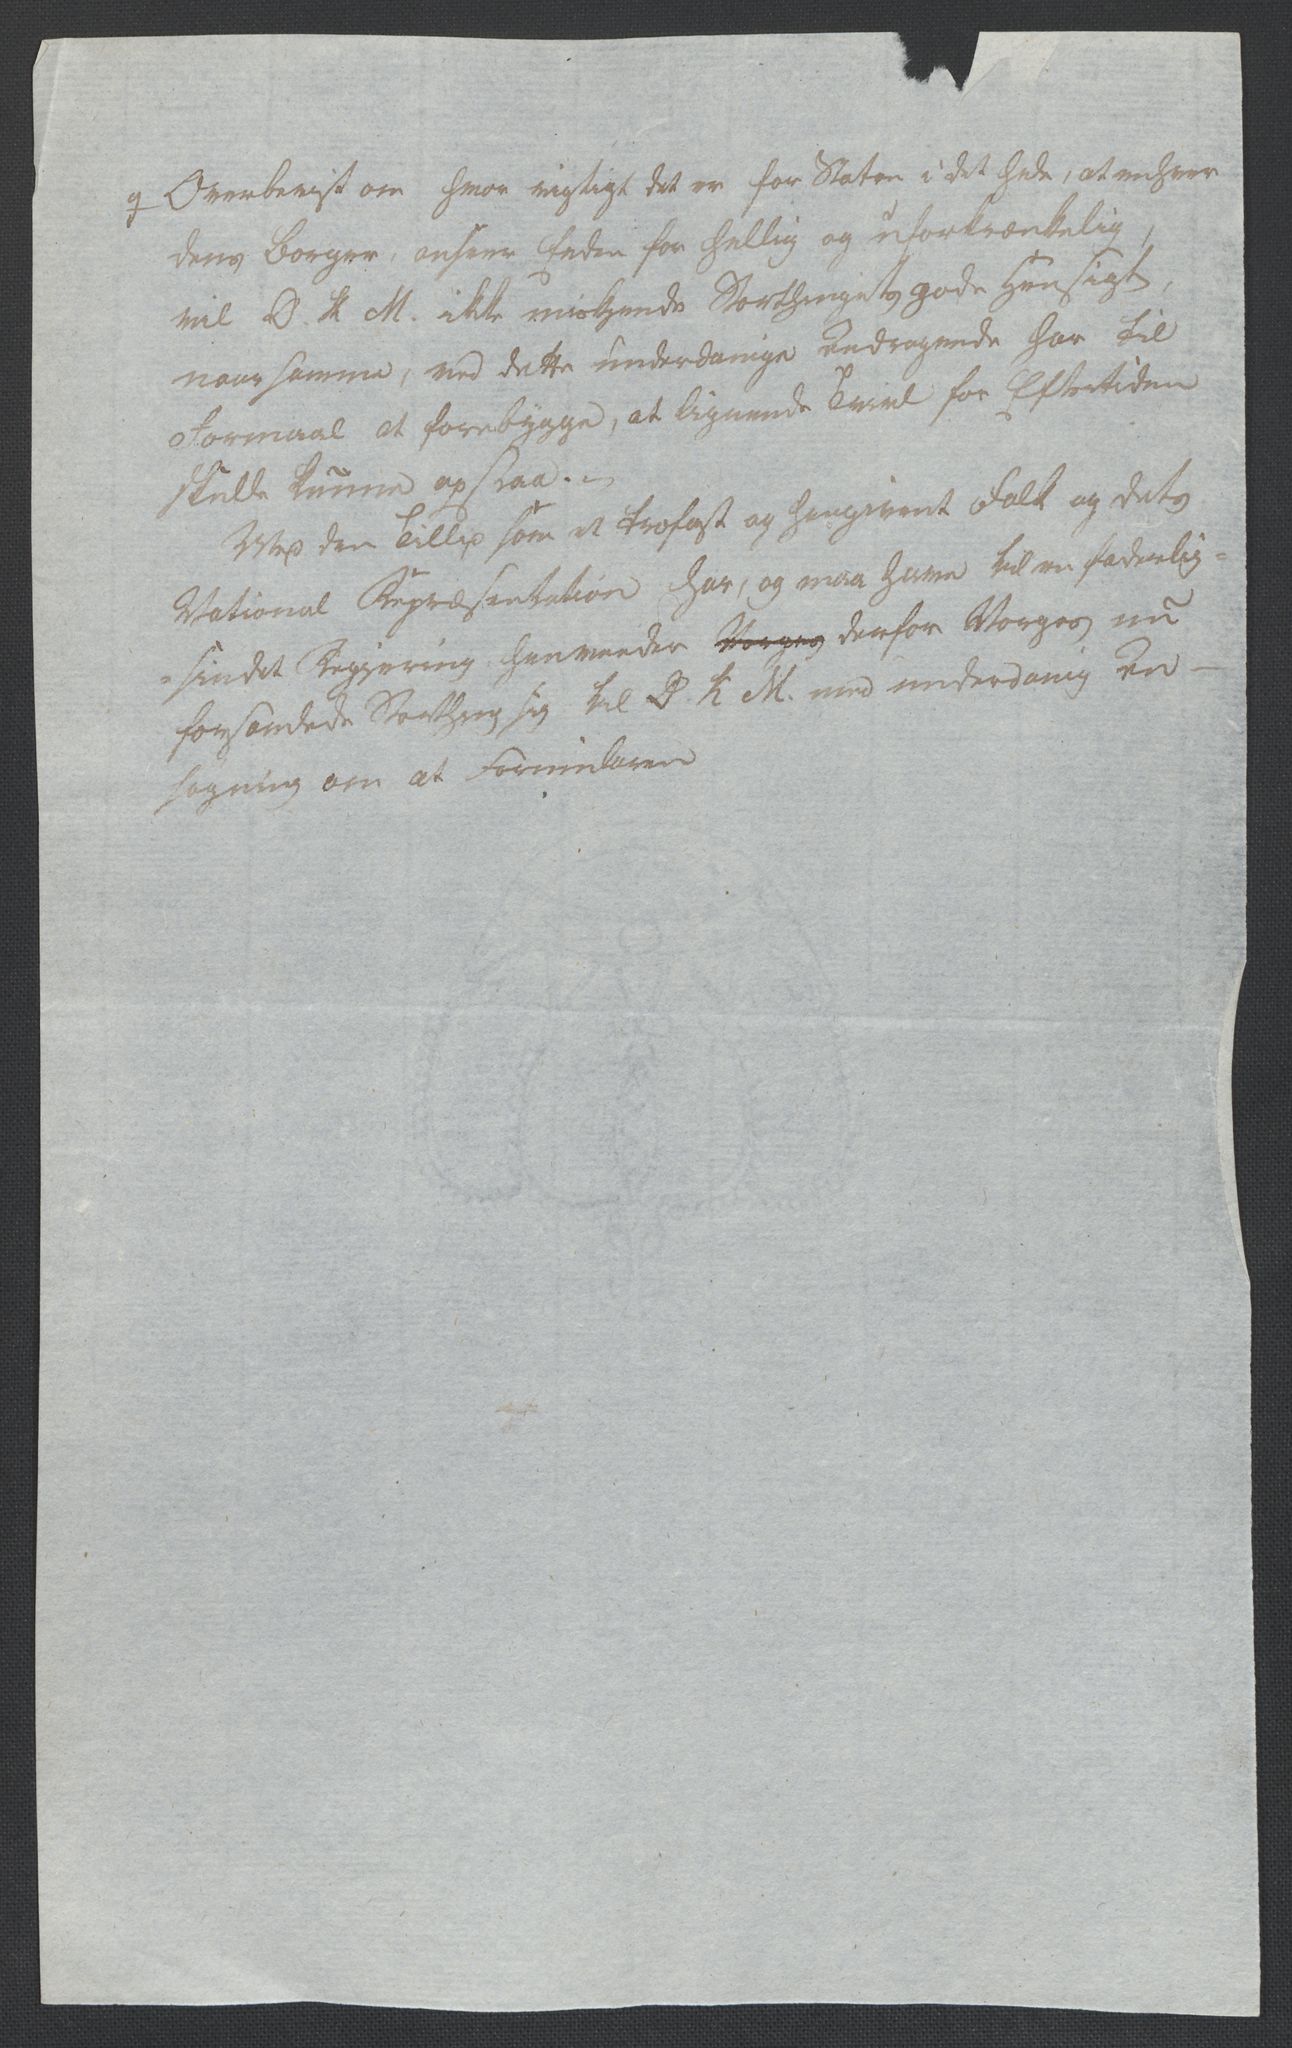 Overbeviist om hvor vigtigt det er for Staten i det hele, at enhver
dens Borger, anseer Eeden for hellig og uforkrænkelig,
vil D. K. M. ikke miskjende Storthingets gode Hensigt,
naar samme, ved dette underdanige Andragende har til
Formaal at forebygge, at lignende Tvivl for Eftertiden
skulle kunne opstaa. –
Med den Tillid som et trofast og hengivent Folk og dets
National Repræsentation har, og maa have til en faderlig-
sindet Regjering henvender Norges derfor Norges nu
forsamlede Storthing sig til D. K. M. med underdanig An-
søgning om at Formularen